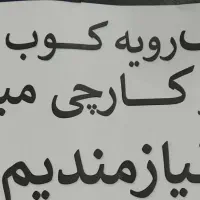 رویه کـوب
کـارچی
نیازمندیم